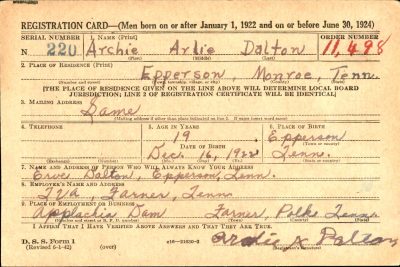 REGISTRATION CARD—(Men born on or after January 1, 1922 and on or before June 30, 1924)
SERIAL NUMBER 1. NAME (Print) ORDER NUMBER
N 220 Archie Arlie Dalton 11,498
(First) (Middle) (Last)
2. PLACE OF RESIDENCE (Print)
Epperson, Monroe, Tenn.
(Number and street) (Town, township, village, or city) (County) (State)
[THE PLACE OF RESIDENCE GIVEN ON THE LINE ABOVE WILL DETERMINE LOCAL BOARD
JURISDICTION; LINE 2 OF REGISTRATION CERTIFICATE WILL BE IDENTICAL]
3. MAILING ADDRESS
Same
[Mailing address if other than place indicated on line 2. If same insert word same]
4. TELEPHONE 5. AGE IN YEARS 6. PLACE OF BIRTH
19 Epperson
DATE OF BIRTH (Town or county)
Dec. 16, 1922 Tenn.
(Exchange) (Number) (Mo.) (Day) (Yr.) (State or country)
7. NAME AND ADDRESS OF PERSON WHO WILL ALWAYS KNOW YOUR ADDRESS
Dalton, Epperson, Tenn.
8. EMPLOYER'S NAME AND ADDRESS
TVA, Farner, Tenn
9. PLACE OF EMPLOYMENT OR BUSINESS
Applachia Dam Farner, Polk, Tenn.
(Number and street or R. F. D. number) (Town) (County) (State)
I AFFIRM THAT I HAVE VERIFIED ABOVE ANSWERS AND THAT THEY ARE TRUE.
D. S. S. Form 1
(Revised 6-1-42) (over) e16—21630-2 Dalton
(Registrant's signature)